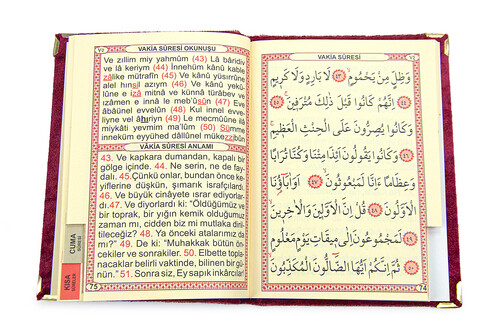 Va VAKİA SÛRESİ OKUNUŞU
Ve zıllim miy yahmûm (43) Lâ bâridiv
ve lâ keriym (44) İnnehüm kânû kable
zâlike mütrafîn (45) Ve kânû yüsırrûne
alel hınsil azıym (46) Ve kânû yekû-
lûne e izâ mitnâ ve künnâ türâbev ve
ızâmen e innâ le meb'ûsûn (47) Eve
âbâünel evvelûn (48) Kul innel evve-
lîyne vel âhirîyn (49) Le mecmûûne ilâ
miykâti yevmim ma'lûm (50) Sümme
inneküm eyyühed dâllûnel mükezzibûn
VÂKIA SÛRESİ ANLAMI
43. Ve kapkara dumandan, kapalı bir
gölge içinde. 44. Ne serin, ne de fay-
dalı. 45.Çünkü onlar, bundan önce ke-
yiflerine düşkün, şımarık israfçılardı.
46. Ve büyük cinâyete ısrar ediyorlar-
dı.47. Ve diyorlardı ki: "Öldüğümüz ve
bir toprak, bir yığın kemik olduğumuz
zaman mı, cidden biz mi mutlaka diril-
tileceğiz? 48. Ya önceki atalarımız da
mı?" 49. De ki: "Muhakkak bütün ön-
cekiler ve sonrakiler. 50. Elbette toplа-
nacaklar belirli vaktinde, bilinen bir gü-
nün." 51. Sonra siz, Ey sapık inkârcılar!
75
CUMA
KISA
VAKIA SÛRESİ
وَظِلٍّ مِنْ يَحْمُومٍ ﴿٤٣﴾ لَا بَارِدٍ وَلَا كَرِيمٍ
﴿٤٤﴾ اِنَّهُمْ كَانُوا قَبْلَ ذٰلِكَ مُتْرَفِينَ ﴿٤٥﴾
وَكَانُوا يُصِرُّونَ عَلَى الْحِنْثِ الْعَظِيمِ
﴿٤٦﴾ وَكَانُوا يَقُولُونَ اَئِذَا مِتْنَا وَكُنَّا تُرَابًا
وَعِظَامًا ءَاِنَّا لَمَبْعُوثُونَ ﴿٤٧﴾ اَوَاٰبَٓاؤُنَا
الْاَوَّلُونَ ﴿٤٨﴾ قُلْ اِنَّ الْاَوَّلِينَ وَالْاٰخِرِينَ
﴿٤٩﴾ لَمَجْمُوعُونَ اِلٰى مِيقَاتِ يَوْمٍ مَعْلُومٍ
﴿٥٠﴾ ثُمَّ اِنَّكُمْ اَيُّهَا الضَّٓالُّونَ الْمُكَذِّبُونَ
74